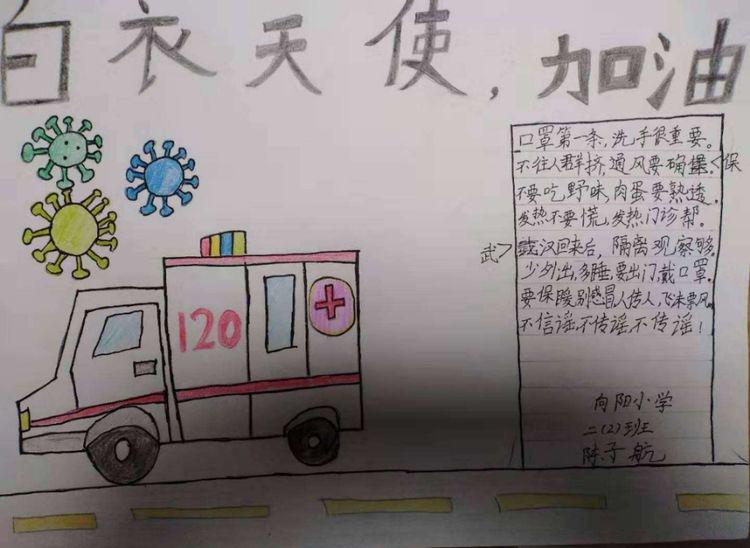 白衣天使,加油
口罩第一条,洗手很重要。
不往人群挤,通风要确保
不要吃野味,肉蛋要熟透。
发热不要慌,发热门诊帮。
武汉回来后,隔离观察够。
少外出,多睡要出门戴口罩
要保暖,别感冒人传人,飞沫票风
不信谣,不传谣,不传谣!
120
向阳小学
二(2)班
陈子航